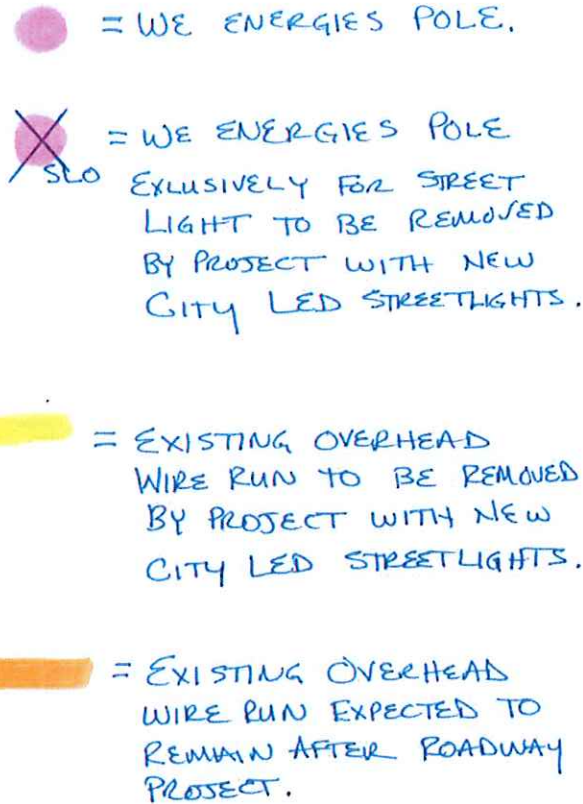 = WE ENERGIES POLE.
= WE ENERGIES POLE
SLO EXLUSIVELY FOR STREET
LIGHT TO BE REMOVED
BY PROJECT WITH NEW
CITY LED STREETLIGHTS.
= EXISTING OVERHEAD
WIRE RUN TO BE REMOVED
BY PROJECT WITH NEW
CITY LED STREETLIGHTS.
= EXISTING OVERHEAD
WIRE RUN EXPECTED TO
REMAIN AFTER ROADWAY
PROJECT.